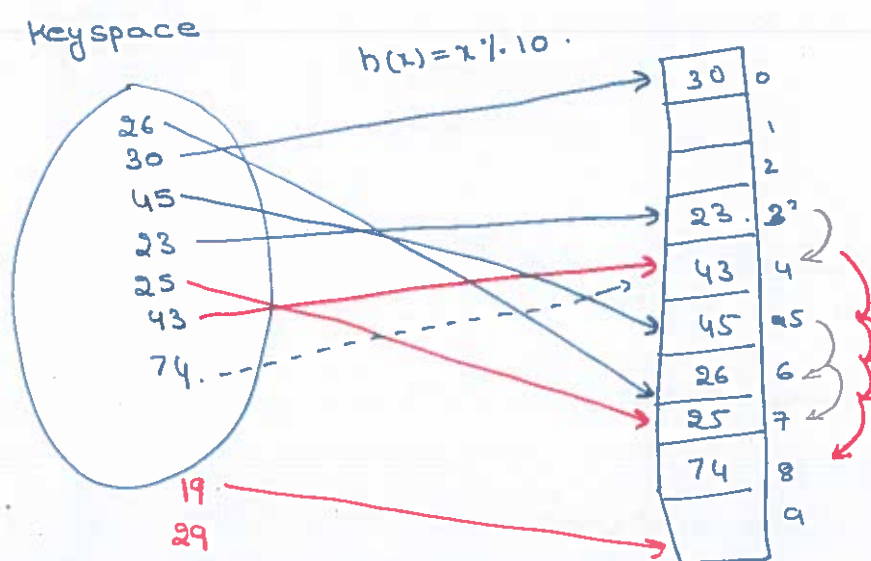 Keyspace
h(x) = x % 10.
26
30
45
23
25
43
74.
19
29
30 0
1
2
23. 3
43 4
45 5
26 6
25 7
74 8
9